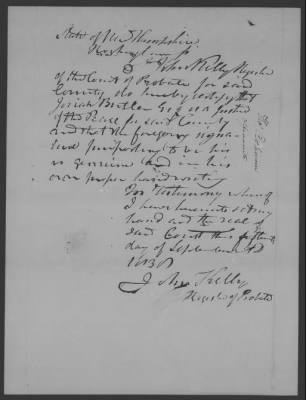 State of New Hampshire
Rockingham ss
I John Kelly Register
of the Court of Probate for said
County do hereby certify that
Josiah Butler Esq is a Justice
of the Peace for said County
and that the foregoing signa-
ture purporting to be his
is genuine and in his
own proper handwriting
In Testimony whereof
I have hereunto set my
hand and the seal of
said Court this
day of September AD
183
John Kelly
Register of Probate